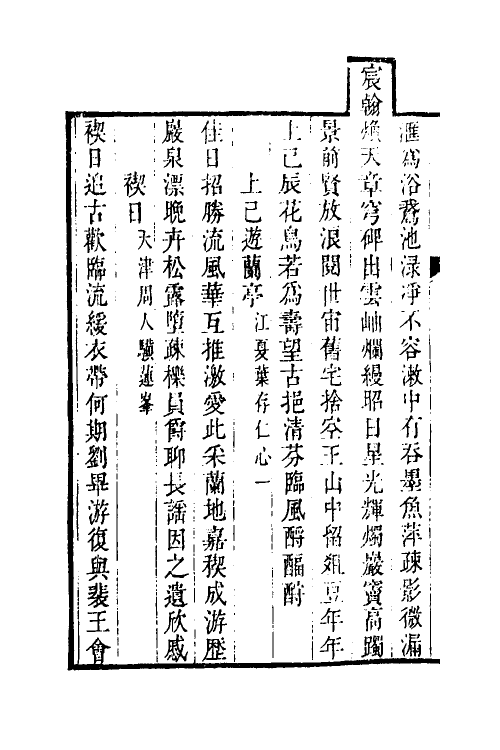 滙為浴鵞池渌净不容漱中有吞墨魚萍疎影微漏
宸翰煥天章穹碑出雲岫爛縵昭日星光輝燭巖竇高躅
景前賢放浪閱世宙舊宅捨空王山中留俎豆年年
上巳辰花鳥若為壽望古挹清芬臨風酹醽酎
上巳遊蘭亭 江夏葉存仁心一
佳日招勝流風華互推激愛此采蘭地嘉稧成游歷
巖泉漂晚卉松露墮疎櫟員爵聊長謡因之遺欣慼
禊日 天津周人驥蓮峯
禊日追古歡臨流緩衣帶何期劉畢游復與裴王會